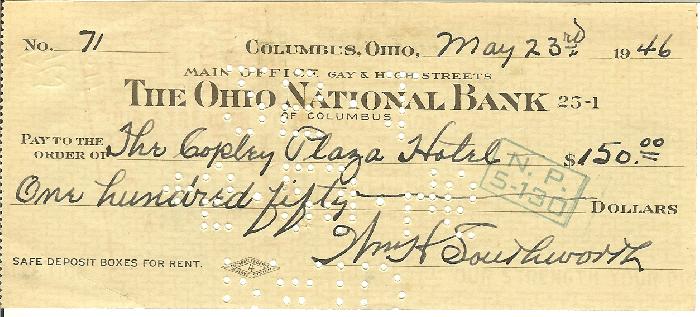 No. 71 Columbus, Ohio, May 23rd 1946
MAIN OFFICE GAY & HIGH STREETS
THE OHIO NATIONAL BANK 25-1
OF COLUMBUS
PAY TO THE ORDER OF The Copley Plaza Hotel $150.00
N. P.
S-130
One hundred fifty DOLLARS
Wm H Southworth
SAFE DEPOSIT BOXES FOR RENT.